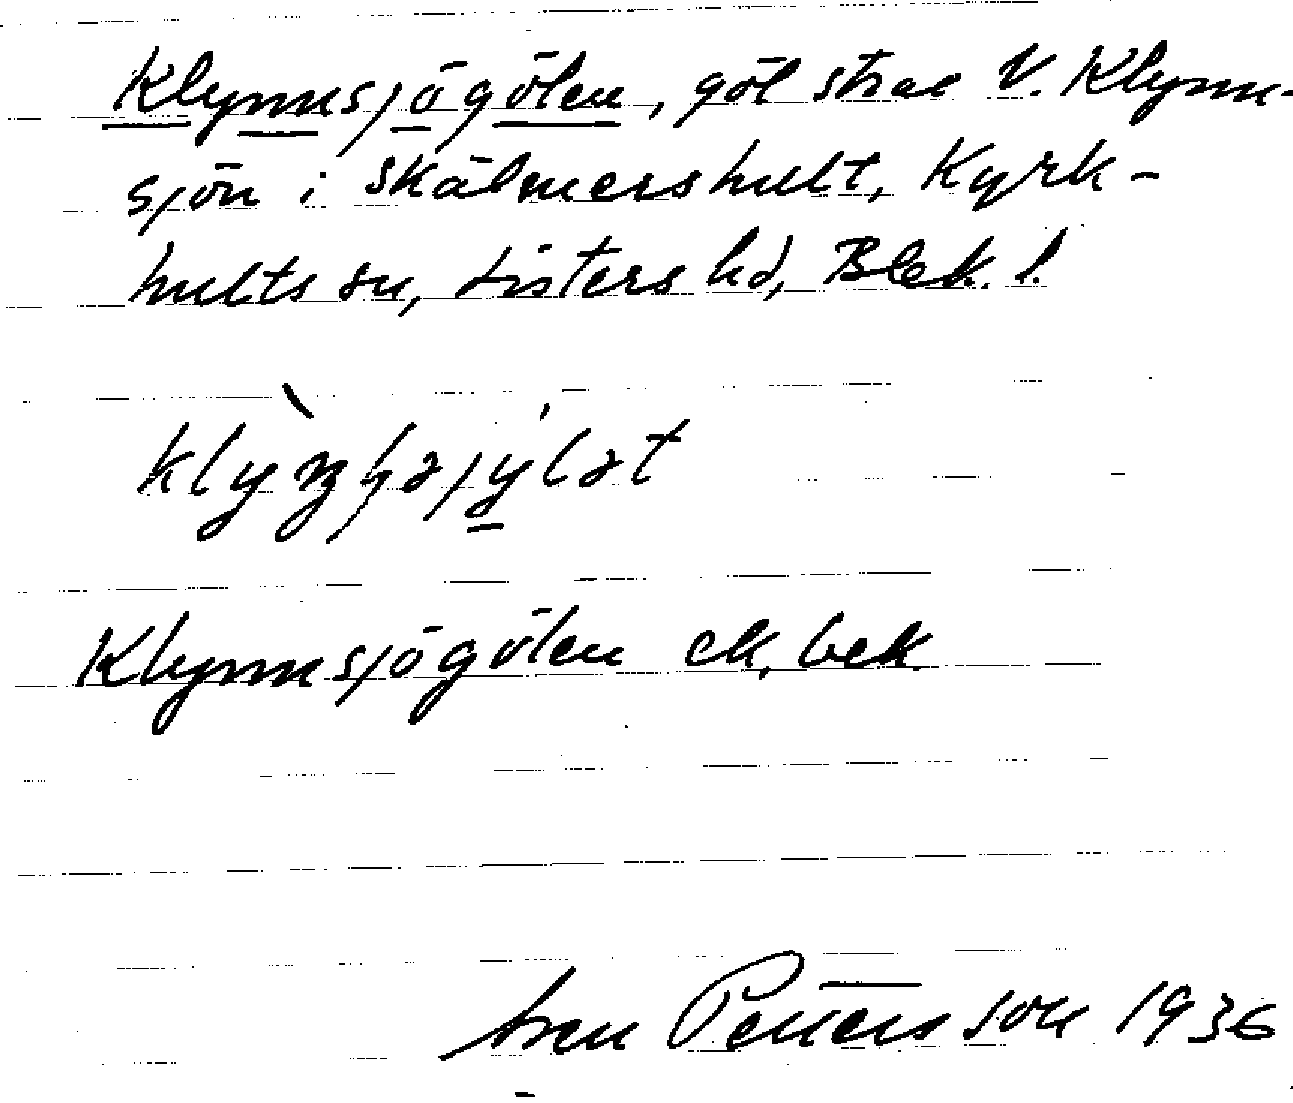 Klynnsjögölen, göl strax V. Klynn-
sjön i Skälmershult, Kyrk-
hults sn, Listers hd, Blek. l.
Klynnsjögölen ek, bek.
Sven Pettersson 1936